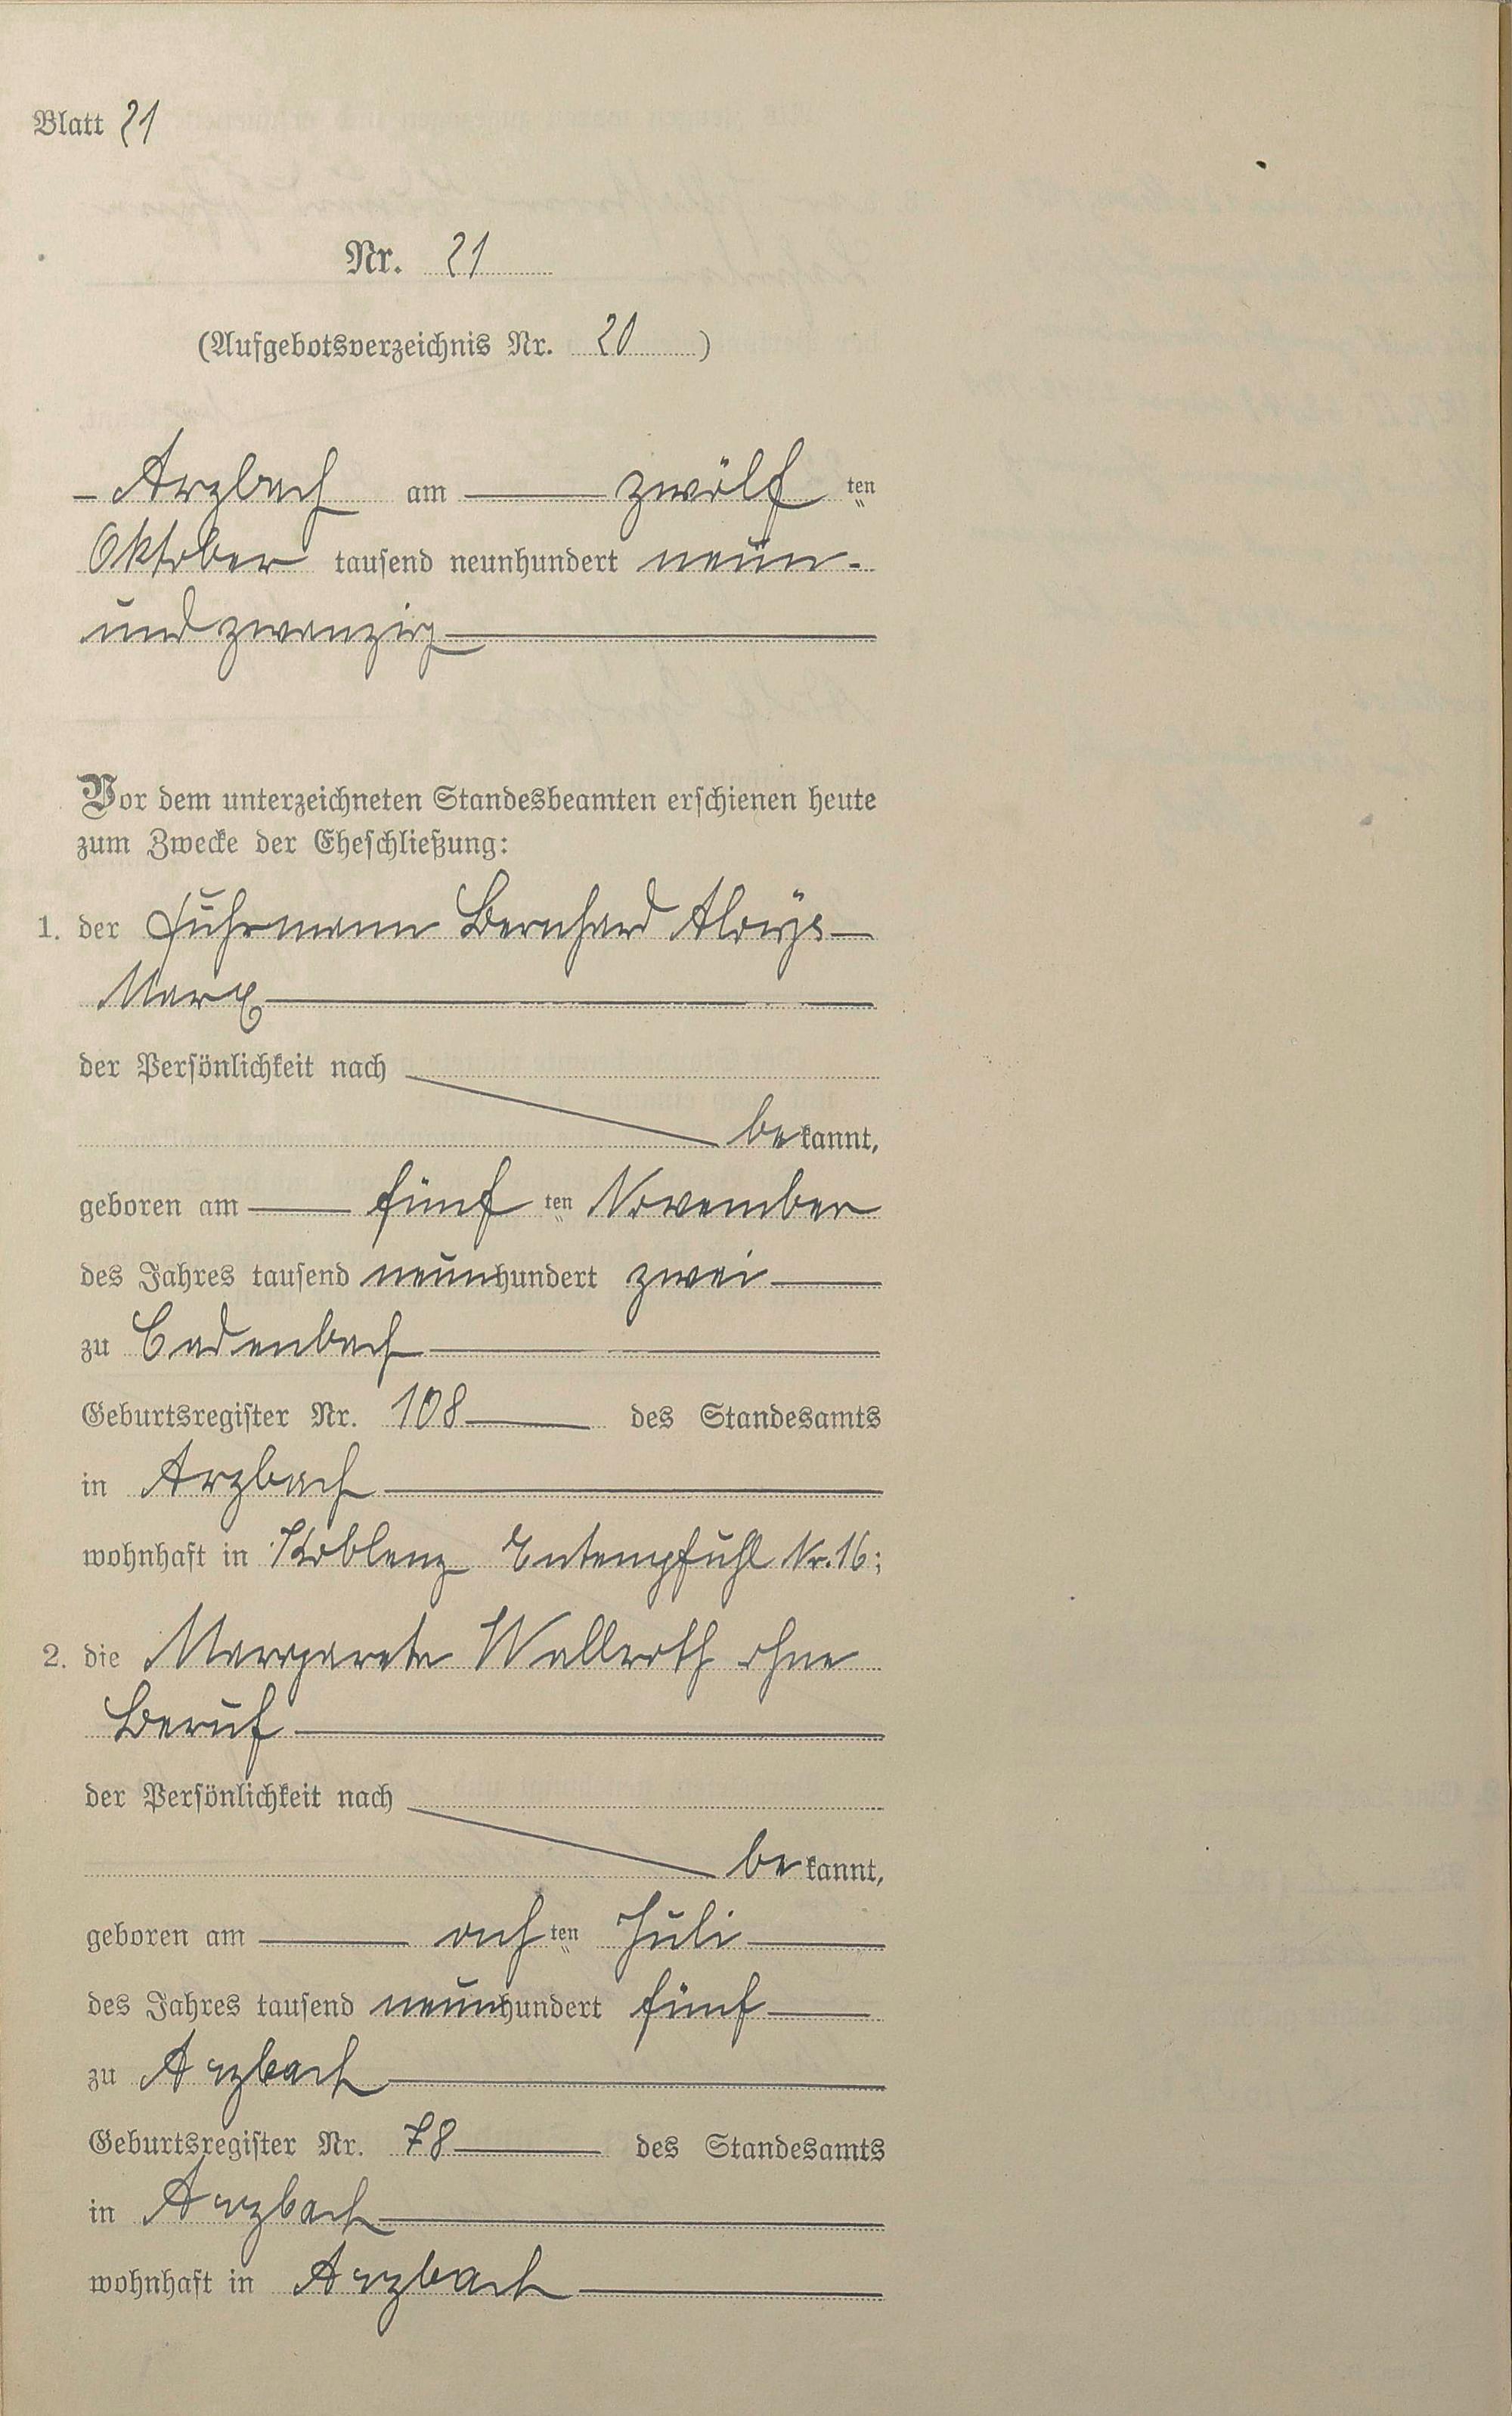 Blatt 21
Nr. 21
(Aufgebotsverzeichnis Nr. 20)
Arzbach am zwölf ten
Oktober tausend neunhundert neun-
undzwanzig
Vor dem unterzeichneten Standesbeamten erschienen heute
zum Zwecke der Eheschließung:
1. der Fuhrmann Bernhard Aloys
Marx
der Persönlichkeit nach
be kannt,
geboren am fünf ten November
des Jahres tausend neunhundert zwei
zu Cadenbach
Geburtsregister Nr. 108 des Standesamts
in Arzbach
wohnhaft in Koblenz Entenpfuhl Nr. 16;
2. die Margareta Wallroth ohne
Beruf
der Persönlichkeit nach
be kannt,
geboren am ach ten Juli
des Jahres tausend neunhundert fünf
zu Arzbach
Geburtsregister Nr. 78 des Standesamts
in Arzbach
wohnhaft in Arzbach